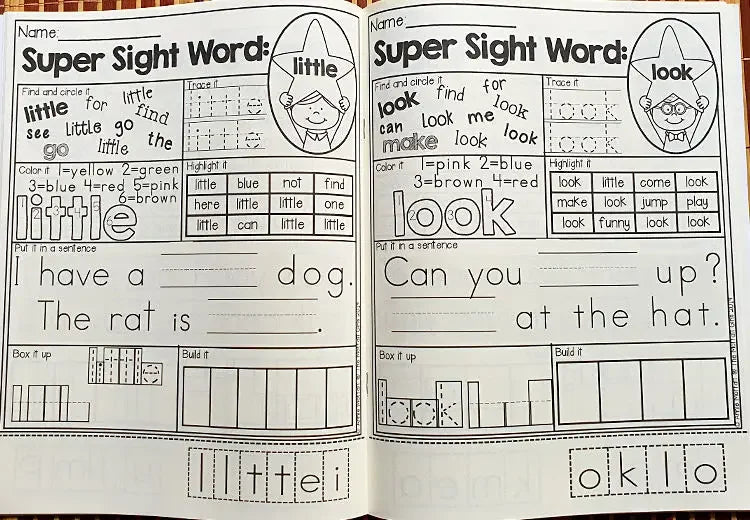 Name:
Super Sight Word:
little
Find and circle it
little for little
find
see little go
go little the
Trace it
little
little
Color it 1=yellow 2=green
3=blue 4=red 5=pink
6=brown
little
Highlight it
little blue not find
here little little one
little can little little
Put it in a sentence
I have a dog.
The rat is .
Box it up
little
Build it
l l t t e i
Name:
Super Sight Word:
look
Find and circle it
look find for
look
can look me
make look look
Trace it
look
look
Color it 1=pink 2=blue
3=brown 4=red
look
Highlight it
look little come look
make look jump play
look funny look look
Put it in a sentence
Can you up?
at the hat.
Box it up
look
Build it
o k l o